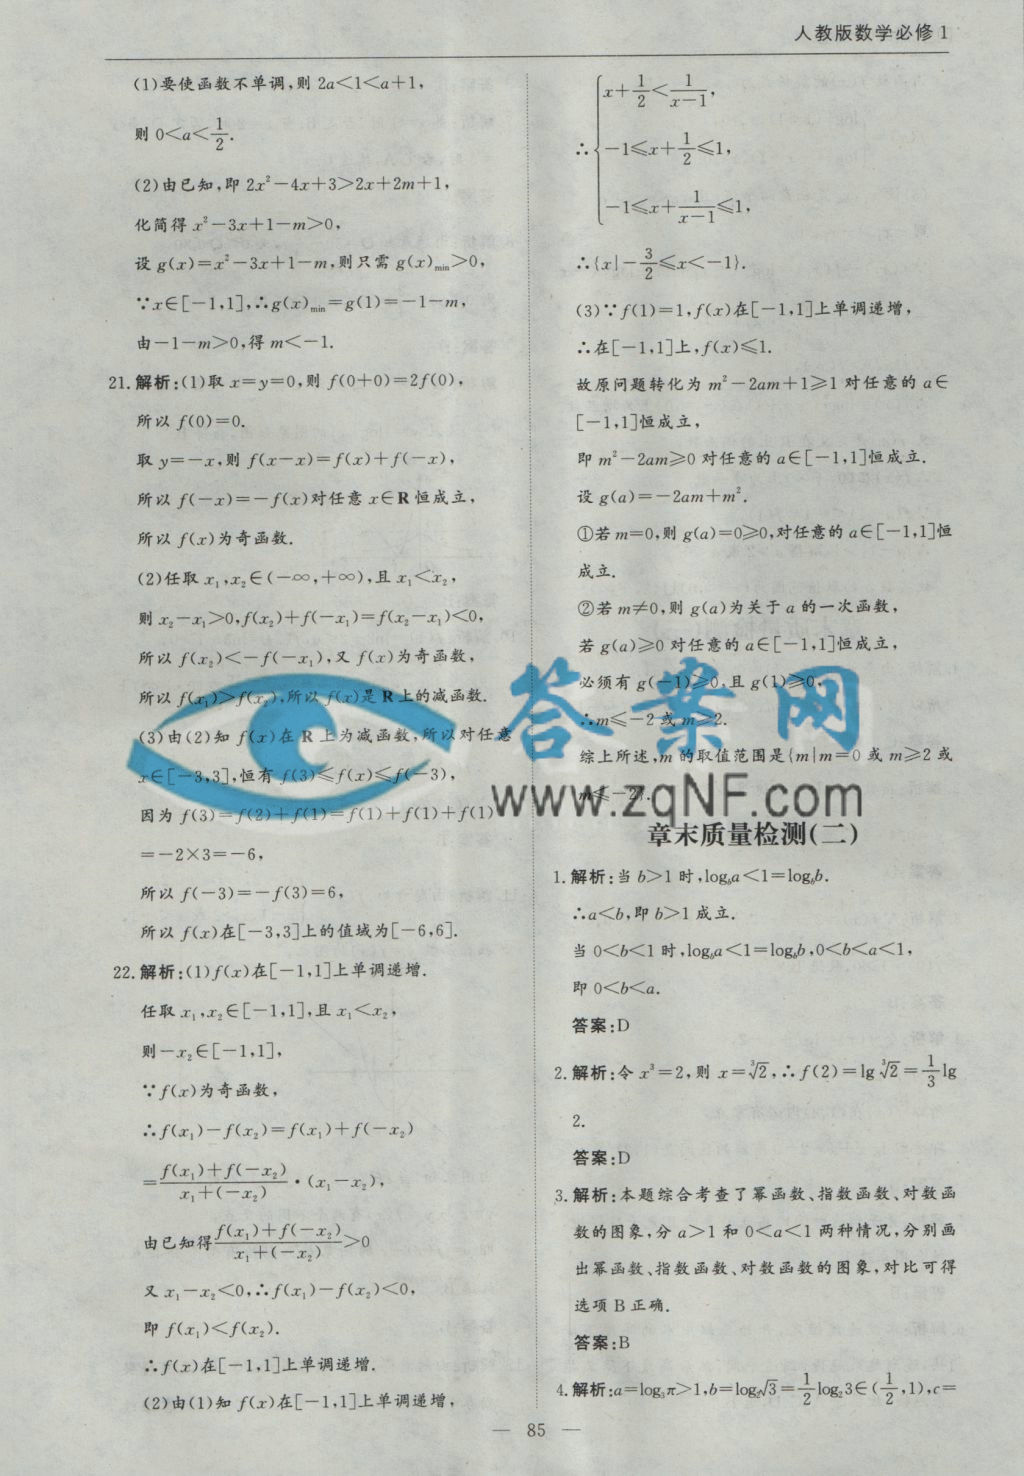 人教版数学必修1
(1)要使函数不单调,则 2a<1<a+1,
则 0<a<1/2.
(2)由已知,即 2x²-4x+3>2x+2m+1,
化简得 x²-3x+1-m>0,
设 g(x)=x²-3x+1-m,则只需 g(x)min>0,
∵x∈[-1,1],∴g(x)min=g(1)=-1-m,
由-1-m>0,得 m<-1.
21.解析:(1)取 x=y=0,则 f(0+0)=2f(0),
所以 f(0)=0.
取 y=-x,则 f(x-x)=f(x)+f(-x),
所以 f(-x)=-f(x)对任意 x∈R 恒成立,
所以 f(x)为奇函数.
(2)任取 x₁,x₂∈(-∞,+∞),且 x₁<x₂,
则 x₂-x₁>0,f(x₂)+f(-x₁)=f(x₂-x₁)<0,
所以 f(x₂)<-f(-x₁),又 f(x)为奇函数,
所以 f(x₁)>f(x₂),所以 f(x)是 R 上的减函数.
(3)由(2)知 f(x)在 R 上为减函数,所以对任意
x∈[-3,3],恒有 f(3)≤f(x)≤f(-3),
因为 f(3)=f(2)+f(1)=f(1)+f(1)+f(1)
=-2×3=-6,
所以 f(-3)=-f(3)=6,
所以 f(x)在[-3,3]上的值域为[-6,6].
22.解析:(1)f(x)在[-1,1]上单调递增.
任取 x₁,x₂∈[-1,1],且 x₁<x₂,
则-x₂∈[-1,1],
∵f(x)为奇函数,
∴f(x₁)-f(x₂)=f(x₁)+f(-x₂)
=(f(x₁)+f(-x₂))/(x₁+(-x₂))·(x₁-x₂),
由已知得(f(x₁)+f(-x₂))/(x₁+(-x₂))>0
又 x₁-x₂<0,∴f(x₁)-f(x₂)<0,
即 f(x₁)<f(x₂).
∴f(x)在[-1,1]上单调递增.
(2)由(1)知 f(x)在[-1,1]上单调递增,
x+1/2<1/(x-1),
∴{-1≤x+1/2≤1,
-1≤x+1/(x-1)≤1,
∴{x|-3/2≤x<-1}.
(3)∵f(1)=1,f(x)在[-1,1]上单调递增,
∴在[-1,1]上,f(x)≤1.
故原问题转化为 m²-2am+1≥1 对任意的 a∈
[-1,1]恒成立,
即 m²-2am≥0 对任意的 a∈[-1,1]恒成立.
设 g(a)=-2am+m².
①若 m=0,则 g(a)=0≥0,对任意的 a∈[-1,1]恒
成立.
②若 m≠0,则 g(a)为关于 a 的一次函数,
若 g(a)≥0 对任意的 a∈[-1,1]恒成立,
必须有 g(-1)≥0,且 g(1)≥0,
∴m≤-2 或 m≥2.
综上所述,m 的取值范围是{m|m=0 或 m≥2 或
m≤-2}.
答案网
www.zqNF.com
章末质量检测(二)
1.解析:当 b>1 时,log_b a<1=log_b b.
∴a<b,即 b>1 成立.
当 0<b<1 时,log_b a<1=log_b b,0<b<a<1,
即 0<b<a.
答案:D
2.解析:令 x³=2,则 x=³√2,∴f(2)=lg ³√2=1/3 lg
2.
答案:D
3.解析:本题综合考查了幂函数、指数函数、对数函
数的图象,分 a>1 和 0<a<1 两种情况,分别画
出幂函数、指数函数、对数函数的图象,对比可得
选项 B 正确.
答案:B
4.解析:a=log₃π>1,b=log₂√3=1/2 log₂3∈(1/2,1),c=
— 85 —